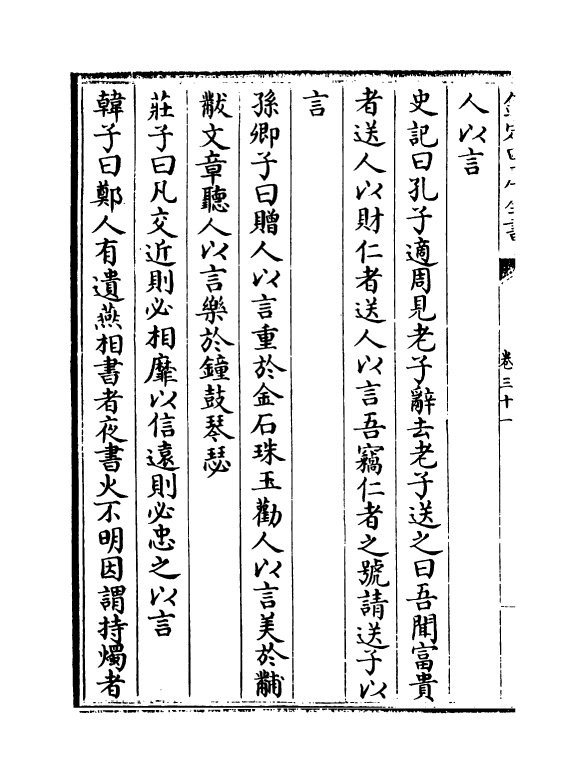 卷三十一
人以言
史記曰孔子適周見老子辭去老子送之曰吾聞富貴
者送人以財仁者送人以言吾竊仁者之號請送子以
言
孫卿子曰贈人以言重於金石珠玉勸人以言美於黼
黻文章聽人以言樂於鐘鼓琴瑟
莊子曰凡交近則必相靡以信遠則必忠之以言
韓子曰鄭人有遺燕相書者夜書火不明因謂持燭者